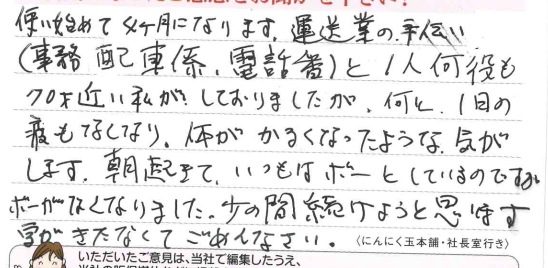 使い始めて4ヶ月になります。運送業の手伝い
(事務 配車係、電話番)と1人何役も
70才近い私が、しておりましたが、何と、1日の
疲もなくなり。体がかるくなったような気が
します。朝起きて、いつもはボーとしているのですが
ボーがなくなりました。少の間続けようと思います
字がきたなくてごめんなさい。
〈にんにく玉本舗・社長室行き〉
いただいたご意見は、当社で編集したうえ、